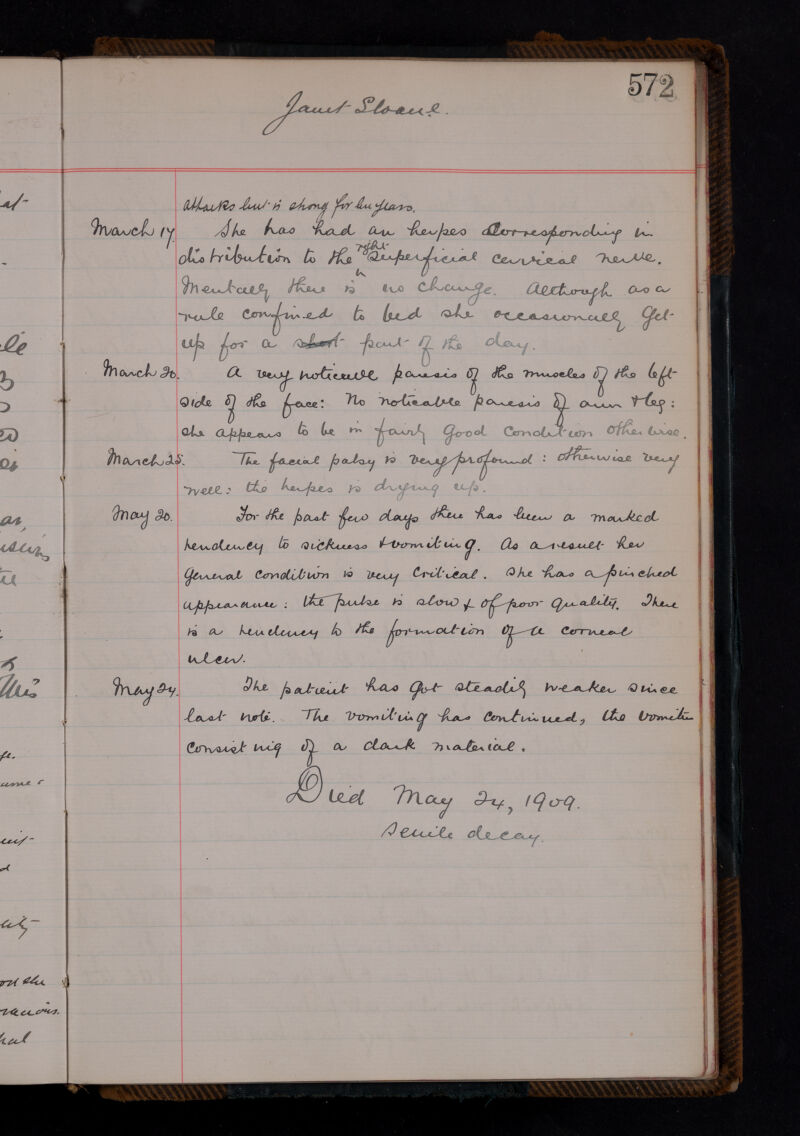 572
Janet Sloane.
attacks but is strong for her years.
March 17. She has had an herpes corresponding in
distribution to the right superficial cervical nerve.
Mentally there is no change. Although as a
rule confined to bed she occasionally gets
up for a short part of the day.
March 20. A very noticeable paresis of the muscles of the left
side of the face: No noticable paresis of arm & leg:
she appears to be in fairly good condition otherwise.
March 25. The facial palsy is very profound: otherwise very
well: the herpes is drying up.
May 20. For the past few days there has been a marked
tendency to sickness & vomiting. As a result her
general condition is very critical. She has a pinched
appearance: the pulse is slow & of poor quality. There
is a tendency to the formation of a corneal
ulcer.
May 24. The patient has got steadily weaker since
last note. The vomiting has continued, the vomitus
consisting of a dark material.
Died May 24, 1909.
Senile decay.